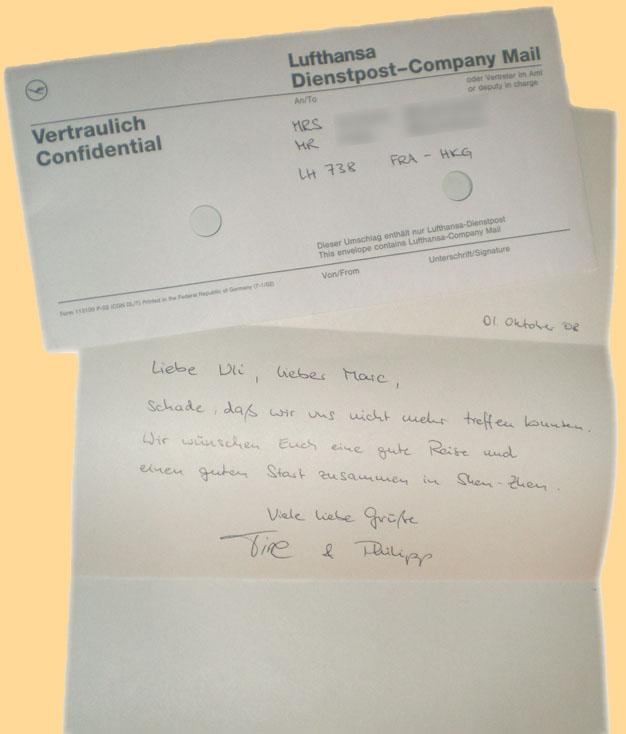 Lufthansa
Dienstpost-Company Mail
oder Vertreter im Amt
or deputy in charge
Vertraulich
Confidential
An/To
MRS
MR
LH 738 FRA - HKG
Dieser Umschlag enthält nur Lufthansa-Dienstpost
This envelope contains Lufthansa-Company Mail
Von/From Unterschrift/Signature
Printed in the Federal Republic of Germany
01. Oktober '08
Liebe Uli, lieber Marc,
schade, daß wir uns nicht mehr treffen konnten.
Wir wünschen Euch eine gute Reise und
einen guten Start zusammen in Shen-Zhen.
Viele liebe Grüße
& Philipp